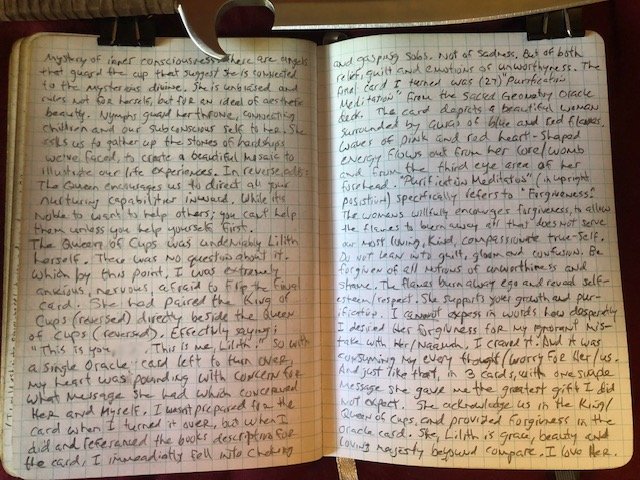 Mystery of inner consciousness. There are angels
that guard the cup that suggest she is connected
to the mysterious divine. She is unbiased and
rules not for herself, but for an ideal of aesthetic
beauty. Nymphs guard her throne, connecting
children and our subconscious self to her. She
asks us to gather up the stones of hardships
we've faced, to create a beautiful mosaic to
illustrate our life experiences. In reverse,
The Queen encourages us to direct all your
nurturing capabilities inward. While its
Noble to want to help others; you cant help
them unless you help yourself first.
The Queen of Cups was undeniably Lilith
herself. There was no question about it.
Which by this point, I was extremely
anxious, nervous, afraid to flip the final
card. She had paired the King of
Cups (reversed) directly beside the Queen
of Cups (reversed). Effectively saying:
"This is you, . This is me, Lilith." So with
a single Oracle card left to turn over,
my heart was pounding with concern for
what message She had which concerned
Her and Myself. I wasnt prepared for the
card when I turned it over, but when I
did and referenced the books description for
the card, I immediatly fell into choking
and gasping sobs. Not of sadness. But of both
relief, guilt and emotions of unworthyness. The
final card I turned was (27) "Purification
Meditation" from the Sacred Geometry Oracle
deck. The card depicts a beautiful woman
surrounded by auras of blue and red flames.
Waves of pink and red heart-shaped
energy flows out from her core/womb
and from the third eye area of her
forehead. "Purification Meditation" (in upright
position) specifically refers to "Forgiveness".
The womans willfully encourages forgiveness, to allow
the flames to burn away all that does not serve
our most loving, kind, compassionate true-self.
Do not lean into guilt, gloom and confusion. Be
forgiven of all notions of unworthiness and
shame. The flames burn away ego and reveal self-
esteem/respect. She supports your growth and pur-
ification. I cannot express in words how desperately
I desired Her forgivness for my ignorant mis-
take with Her/Naamah. I craved it. And it was
consuming my every thought/worry for Her/us.
And just like that, in 3 cards, with one simple
message she gave me the greatest gift I did
not expect. She acknowledge us in the King/
Queen of Cups, and provided forgivness in the
Oracle card. She, Lilith is grace, beauty and
loving majesty beyound compare. I love Her.